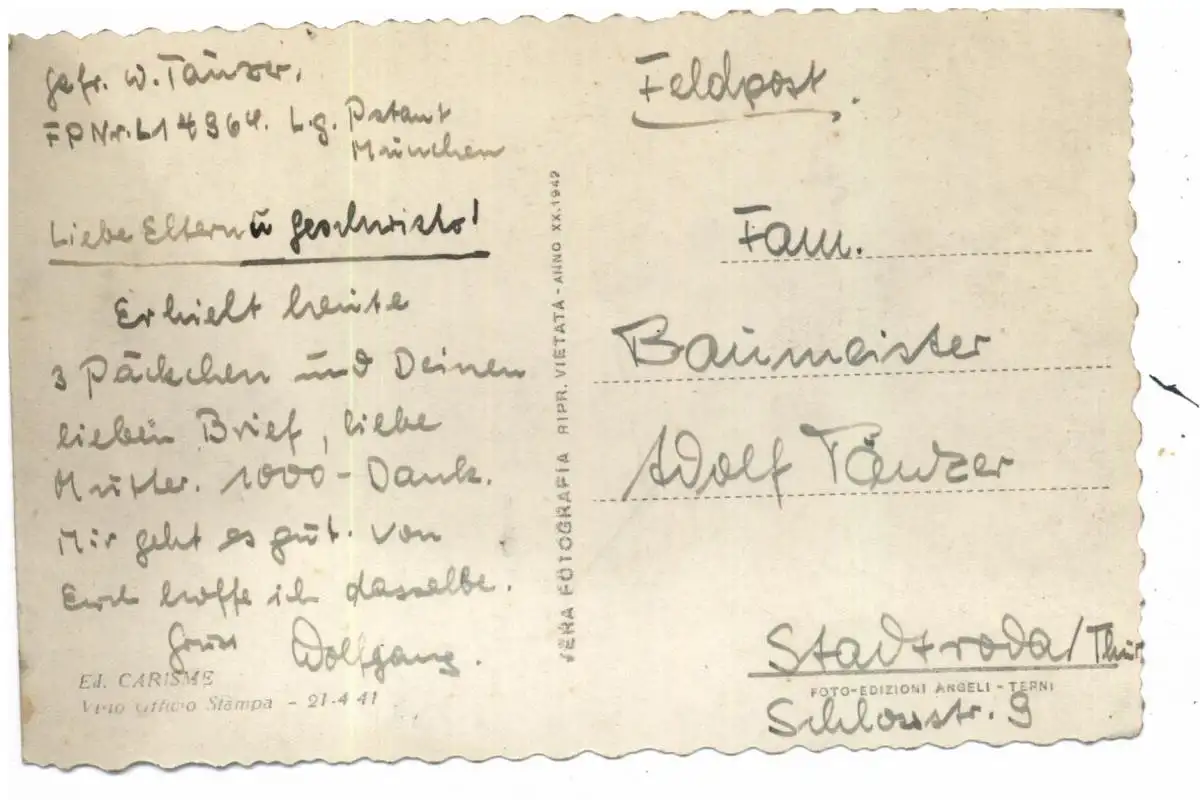 Gefr. W. Tänzer.
FPNr. L14364. L.g. Pstamt
München
Liebe Eltern u Geschwister!
Erhielt heute
3 Päckchen und Deinen
lieben Brief, liebe
Mutter. 1000-Dank.
Mir geht es gut. Von
Euch hoffe ich dasselbe.
Gruss Wolfgang.
Ed. CARISME
Visto Ufficio Stampa - 21-4-41
VERA FOTOGRAFIA RIPR. VIETATA - ANNO XX.1942
Feldpost.
Fam.
Baumeister
Adolf Tänzer
Stadtroda/Thür
FOTO-EDIZIONI ANGELI - TERNI
Schlossstr. 9